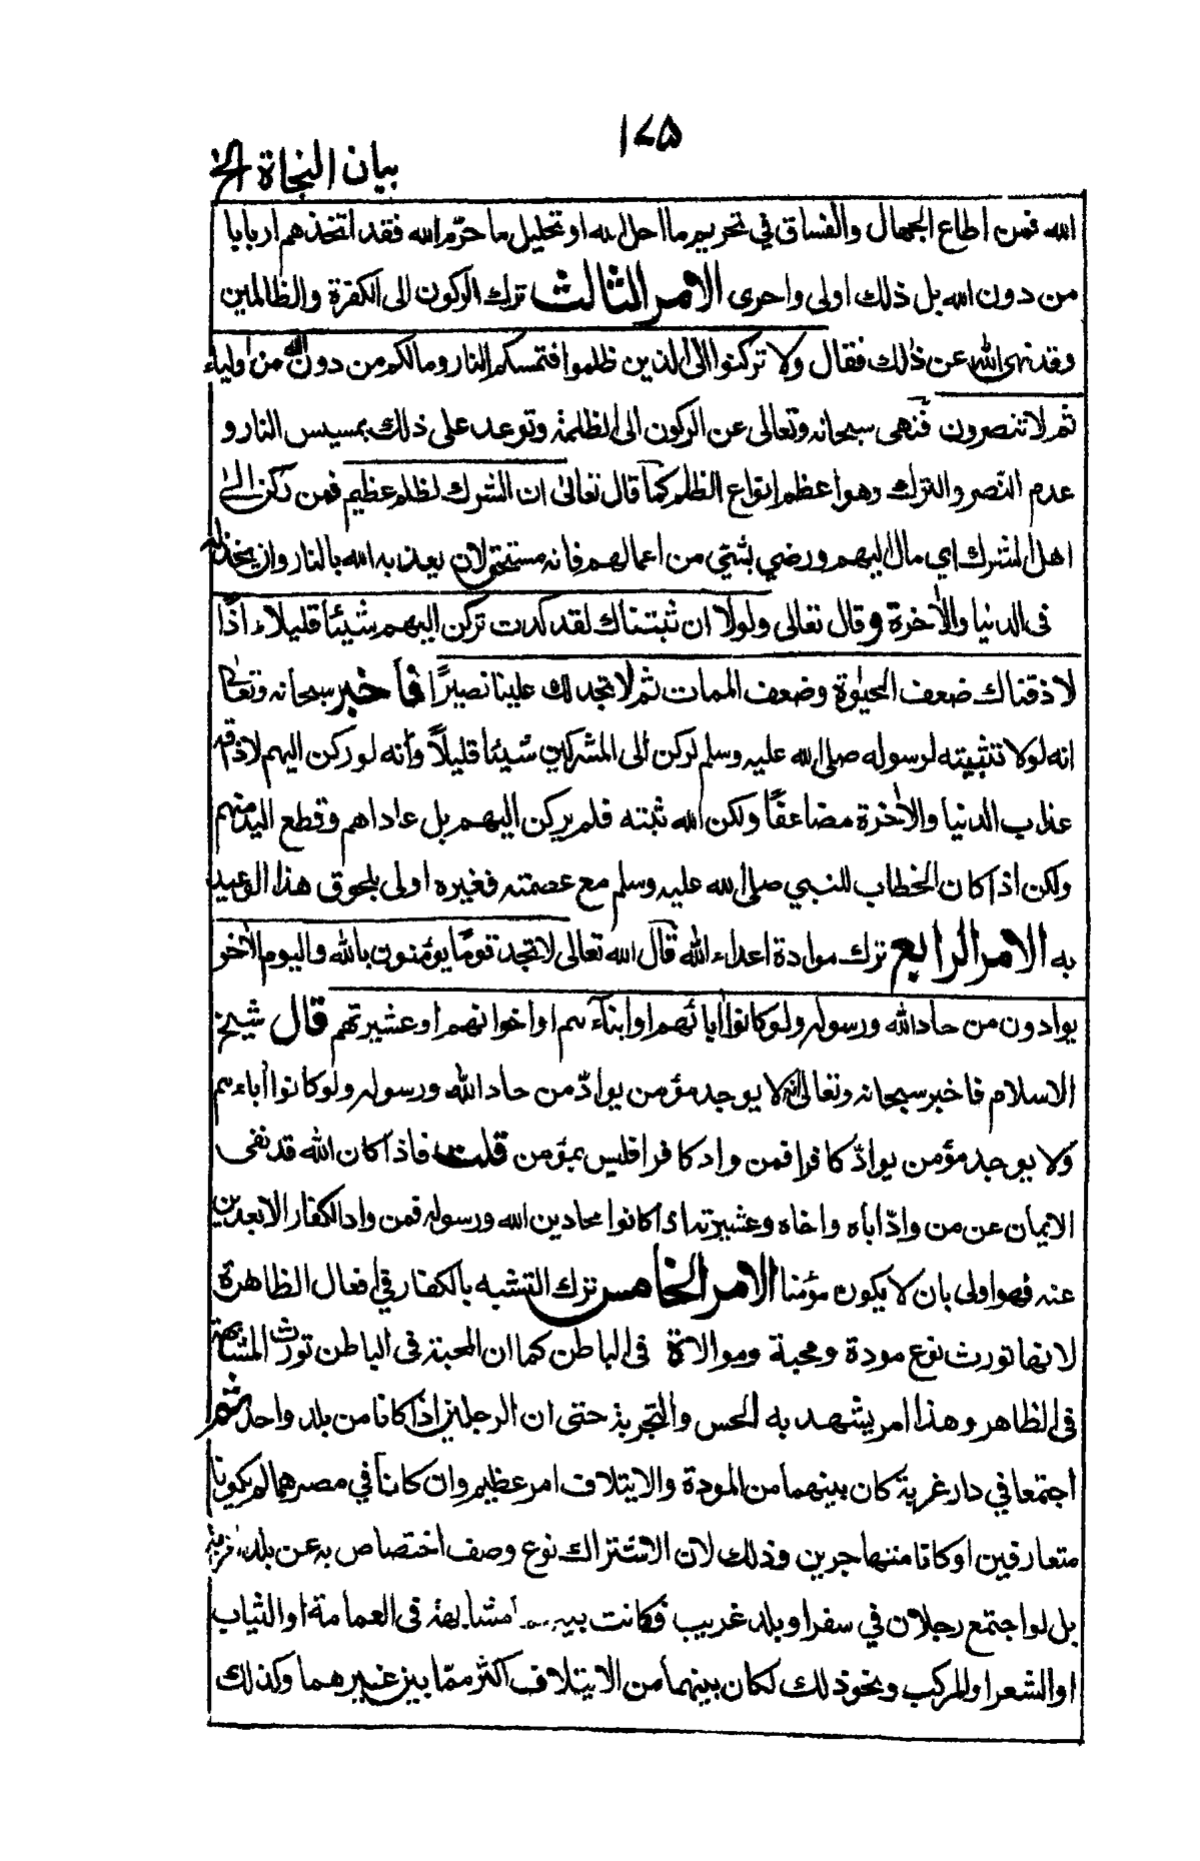 ۱۷۵
بيان النجاة الخ
الله فمن اطاع الجهال والفساق في تحريم ما احل الله او تحليل ما حرّم الله فقد اتخذهم اربابا
من دون الله بل ذلك اولى واحرى الامر الثالث ترك الركون الى الكفرة والظالمين
وقد نهى الله عن ذلك فقال ولا تركنوا الى الذين ظلموا فتمسكم النار ومالكم من دون الله من اولياء
ثم لا تنصرون فنهى سبحانه وتعالى عن الركون الى الظلمة وتوعد على ذلك بمسيس النار و
عدم النصر والترك وهو اعظم انواع الظلم كما قال تعالى ان الشرك لظلم عظيم فمن ركن الى
اهل الشرك اي مال اليهم ورضي بشئ من اعمالهم فانه مستحق لان يعذبه الله بالنار وان يخذله
فى الدنيا والأخرة وقال تعالى ولولا ان ثبتناك لقد كدت تركن اليهم شيئا قليلا ه اذًا
لاذقناك ضعف الحيوة وضعف الممات ثم لا تجد لك علينا نصيرًا فأخبر سبحانه وتعالى
انه لولا تثبيته لرسوله صلى الله عليه وسلم لركن الى المشركين شيئا قليلاً وأنه لو ركن اليهم لاذقه
عذاب الدنيا والأخرة مضاعفًا ولكن الله ثبته فلم يركن اليهم بل عاداهم وقطع اليد منهم
ولكن اذا كان الخطاب للنبي صلى الله عليه وسلم مع عصمته فغيره اولى بلحوق هذا الوعيد
به الامر الرابع ترك موادة اعداء الله قال الله تعالى لا تجد قومًا يؤمنون بالله واليوم الأخر
يوادون من حاد الله ورسوله ولو كانوا اٰبائهم او ابناءهم او اخوانهم او عشيرتهم قال شيخ
الاسلام فاخبر سبحانه وتعالى انه لا يوجد مؤمن يوادّ من حاد الله ورسوله ولو كانوا أباءهم
ولا يوجد مؤمن يوادّ كافرا فمن واد كافرا فليس بمؤمن قلت فاذا كان الله قد نفى
الايمان عن من وادّ اباه واخاه وعشيرته اذا كانوا محادين الله ورسوله فمن واد الكفار الابعدين
عنه فهو اولى بان لا يكون مؤمنا الامر الخامس ترك التشبه بالكفار في افعال الظاهرة
لانها تورث نوع مودة ومحبة وموالاة فى الباطن كما ان المحبة فى الباطن تورث المشابهة
فى الظاهر وهذا امر يشهد به الحس والتجربة حتى ان الرجلين اذا كانا من بلد واحد ثم
اجتمعا في دار غربة كان بينهما من المودة والايتلاف امر عظيم وان كانا في مصرهما لم يكونا
متعارفين او كانا متهاجرين وذلك لان الاشتراك نوع وصف اختصاص به عن بلد
بل لو اجتمع رجلان في سفر او بلد غريب فكانت مشابهة فى العمامة او الثياب
او الشعر او المركب ونحو ذلك لكان بينهما من الايتلاف اكثر ممّا بين غيرهما وكذلك